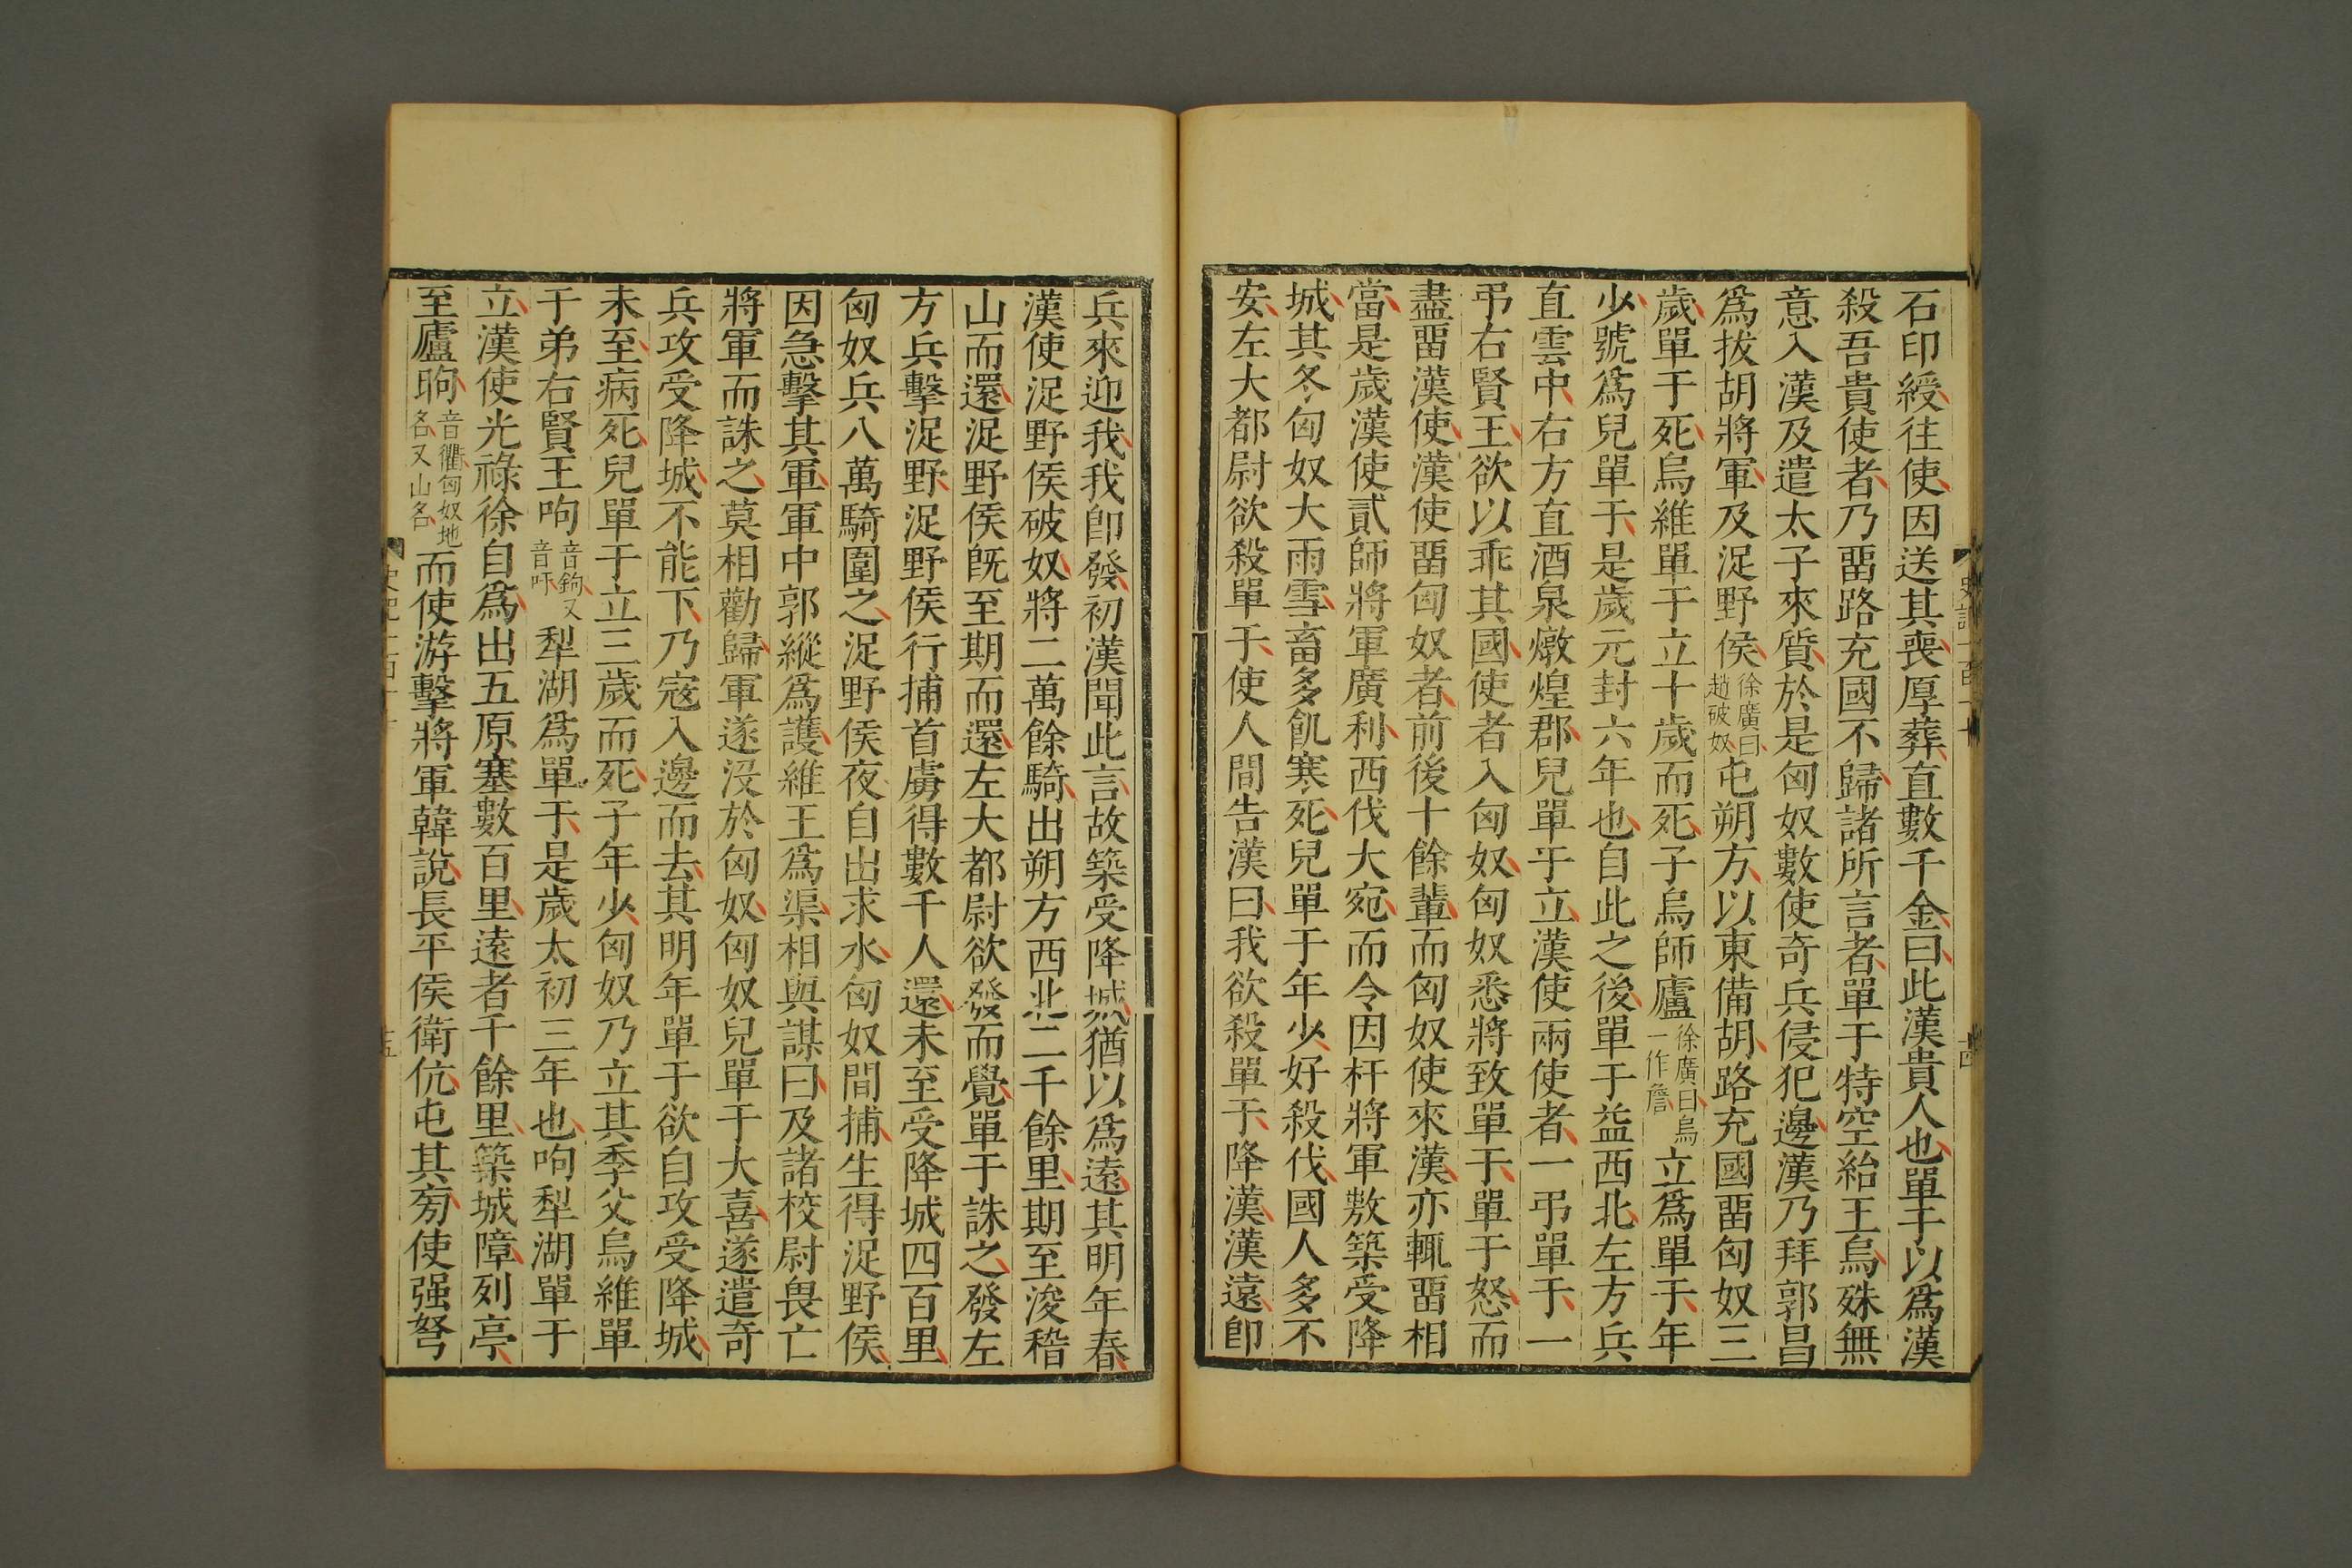 石印綬往使因送其喪厚葬直數千金曰此漢貴人也單于以爲漢
殺吾貴使者乃畱路充國不歸諸所言者單于特空紿王烏殊無
意入漢及遣太子來質於是匈奴數使奇兵侵犯邊漢乃拜郭昌
爲拔胡將軍及浞野侯徐廣曰趙破奴屯朔方以東備胡路充國畱匈奴三
歲單于死烏維單于立十歲而死子烏師廬徐廣曰烏一作詹立爲單于年
少號爲兒單于是歲元封六年也自此之後單于益西北左方兵
直雲中右方直酒泉燉煌郡兒單于立漢使兩使者一弔單于一
弔右賢王欲以乖其國使者入匈奴匈奴悉將致單于單于怒而
盡畱漢使漢使畱匈奴者前後十餘輩而匈奴使來漢亦輒畱相
當是歲漢使貳師將軍廣利西伐大宛而令因杅將軍敖築受降
城其冬匈奴大雨雪畜多飢寒死兒單于年少好殺伐國人多不
安左大都尉欲殺單于使人間告漢曰我欲殺單于降漢漢遠卽
史記一百一十
十四
兵來迎我我卽發初漢聞此言故築受降城猶以爲遠其明年春
漢使浞野侯破奴將二萬餘騎出朔方西北二千餘里期至浚稽
山而還浞野侯旣至期而還左大都尉欲發而覺單于誅之發左
方兵擊浞野浞野侯行捕首虜得數千人還未至受降城四百里
匈奴兵八萬騎圍之浞野侯夜自出求水匈奴間捕生得浞野侯
因急擊其軍軍中郭縱爲護維王爲渠相與謀曰及諸校尉畏亡
將軍而誅之莫相勸歸軍遂沒於匈奴匈奴兒單于大喜遂遣奇
兵攻受降城不能下乃寇入邊而去其明年單于欲自攻受降城
未至病死兒單于立三歲而死子年少匈奴乃立其季父烏維單
于弟右賢王呴音鉤又音吁犁湖爲單于是歲太初三年也呴犁湖單于
立漢使光祿徐自爲出五原塞數百里遠者千餘里築城障列亭
至廬朐音衢匈奴地名又山名而使游擊將軍韓說長平侯衛伉屯其旁使强弩
十五